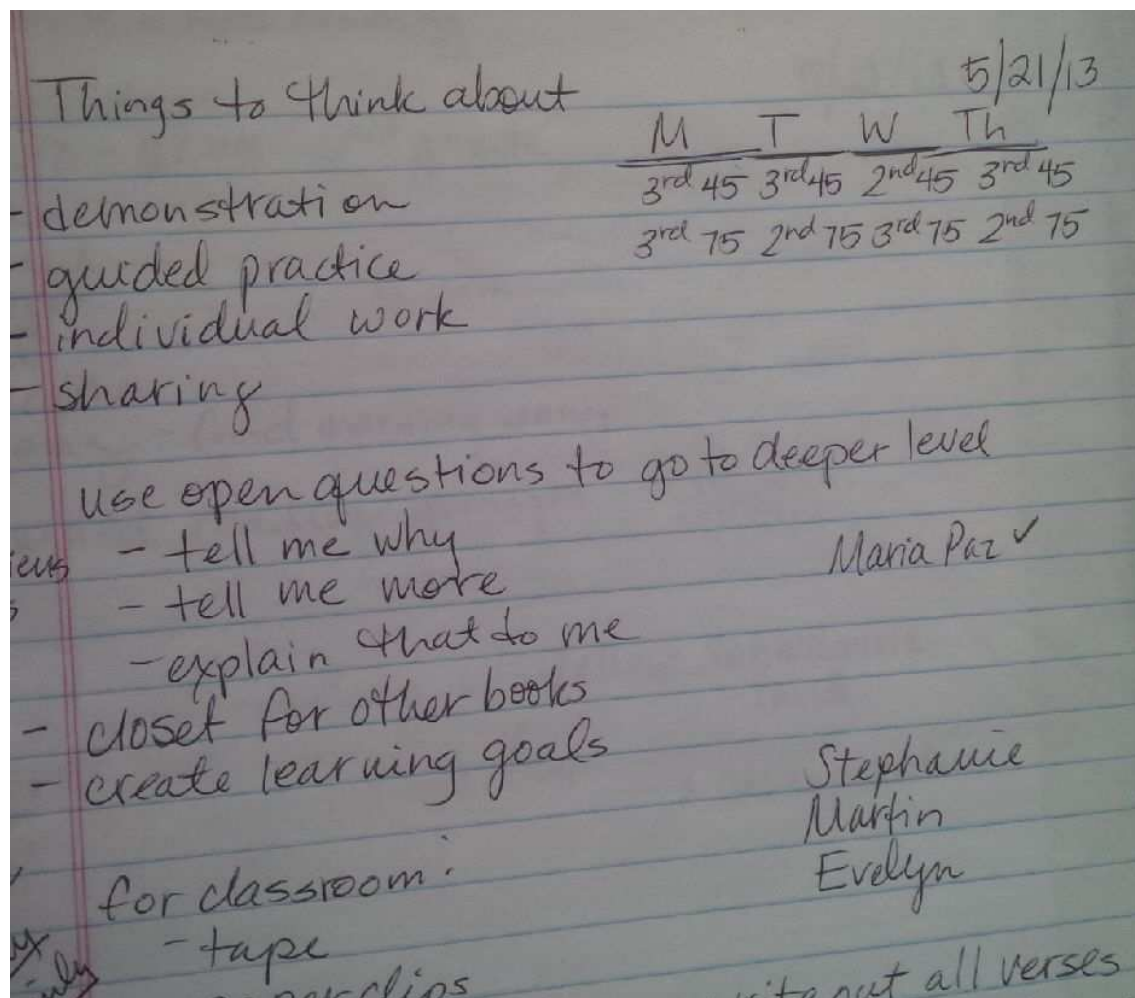 Things to think about
5/21/13
M T W Th
3rd 45 3rd 45 2nd 45 3rd 45
3rd 75 2nd 75 3rd 75 2nd 75
- demonstration
- guided practice
- individual work
- sharing
use open questions to go to deeper level
- tell me why
Maria Paz ✓
- tell me more
- explain that to me
- closet for other books
- create learning goals
Stephanie
Martin
Evelyn
for classroom:
- tape
clips
out all verses